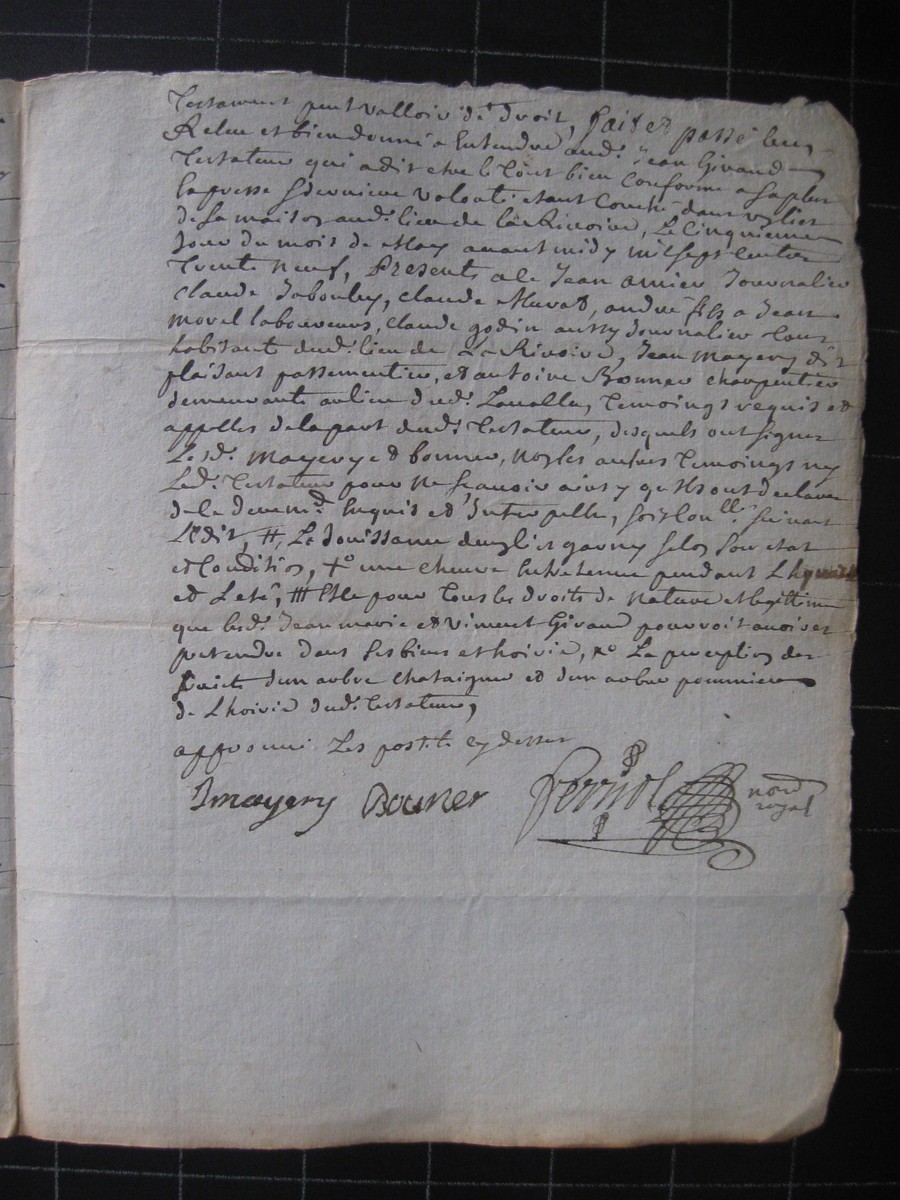 Testament peut valloir de droit, fait et passé leu
Releu et bien donné a Entendre aud. Jean Giraud
Testateur qui a dit etre le tout bien Conforme a sa plus
Expresse & derniere volonté etant Couché dans un lict
de sa maison aud. lieu de la Rivoire, Le Cinquieme
Jour du mois de May avant midy mil sept cent
Trente neuf, Presents a ce Jean Journalier
Claude Jabouley, Claude Murat, andré fils a Jean
morel laboureurs, Claude godin aussy Journalier tous
habitant dud. lieu de La Rivoire, Jean mayery dit
plaisant passementier, et antoine Bonner charpentier
demeurants au lieu dud. Lavalla, temoings requis et
appelles de la part dud. Testateur, desquels ont signez
Lesd. Mayery et bonner, non les autres temoings ny
Led. Testateur pour ne scavoir ainsy qu'ils ont declaré
de la Enquis et Interpellé, soit suivant
L'Edit, # La Jouissance d'un lict garny selon son etat
et Condition, +° une cheuvre Entretenue pendant L'hyvert
et L'eté, ## Et ce pour tous les droits de nature et legitime
que lesd. Jean marie et viment Giraud pourroit avoir et
pretendre dans ses biens et hoirie, La perception des
fruits d'un arbre chataigner et d'un arbre pommier
de L'hoirie dud. Testateur,
approuvé Les postile cy dessus
Jmayery Bouner Ferriol nore
royal